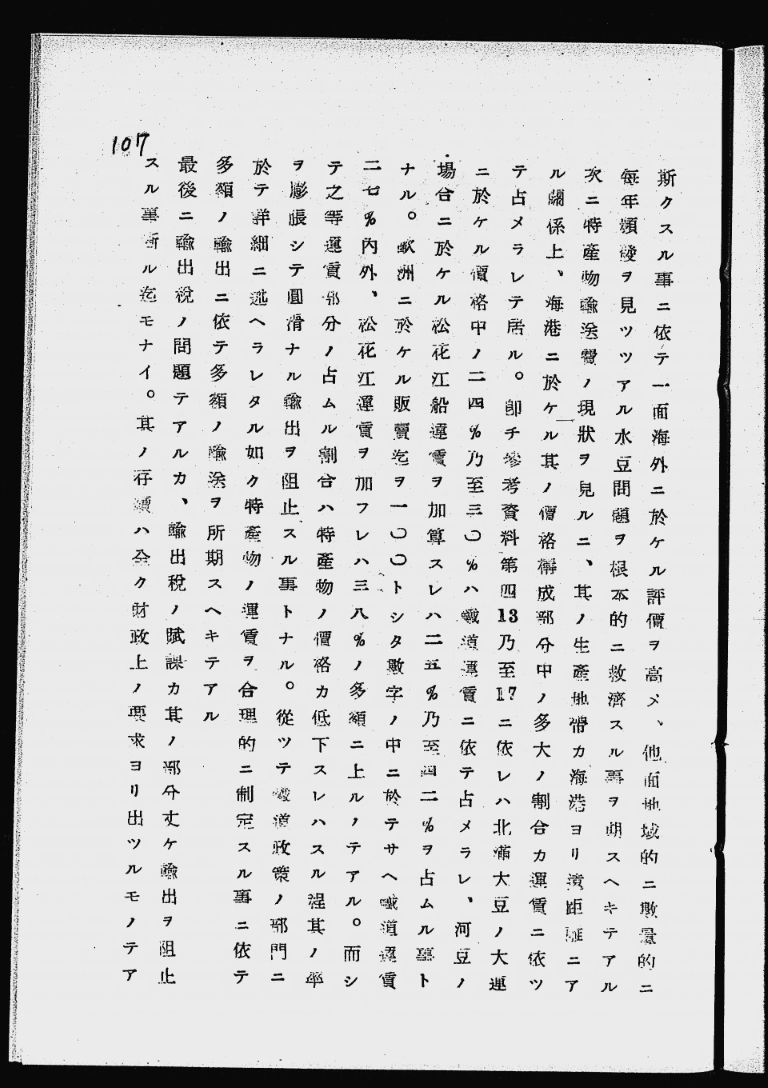 斯クスル事ニ依テ一面海外ニ於ケル評價ヲ高メ、他面地域的ニ數量的ニ
每年頻發ヲ見ツツアル水豆問題ヲ根本的ニ救濟スル事ヲ期スヘキテアル
次ニ特產物輸送費ノ現狀ヲ見ルニ、其ノ生產地帶カ海港ヨリ遠距離ニア
ル關係上、海港ニ於ケル其ノ價格構成部分中ノ多大ノ割合カ運賃ニ依ツ
テ占メラレテ居ル。卽チ參考資料第四13乃至17ニ依レハ北滿大豆ノ大連
ニ於ケル價格中ノ二四%乃至三〇%ハ鐵道運賃ニ依テ占メラレ、河豆ノ
場合ニ於ケル松花江船運賃ヲ加算スレハ二五%乃至四二%ヲ占ムル事ト
ナル。歐洲ニ於ケル販賣迄ヲ一〇〇トシタ數字ノ中ニ於テサヘ鐵道運賃
二七%內外、松花江運賃ヲ加フレハ三八%ノ多額ニ上ルノテアル。而シ
テ之等運賃部分ノ占ムル割合ハ特產物ノ價格カ低下スレハスル程其ノ率
ヲ膨脹シテ圓滑ナル輸出ヲ阻止スル事トナル。從ツテ鐵道政策ノ部門ニ
於テ詳細ニ述ヘラレタル如ク特產物ノ運賃ヲ合理的ニ制定スル事ニ依テ
多額ノ輸出ニ依テ多額ノ輸送ヲ所期スヘキテアル
最後ニ輸出稅ノ問題テアルカ、輸出稅ノ賦課カ其ノ部分丈ケ輸出ヲ阻止
スル事斷ル迄モナイ。其ノ存續ハ全ク財政上ノ要求ヨリ出ツルモノテア
107